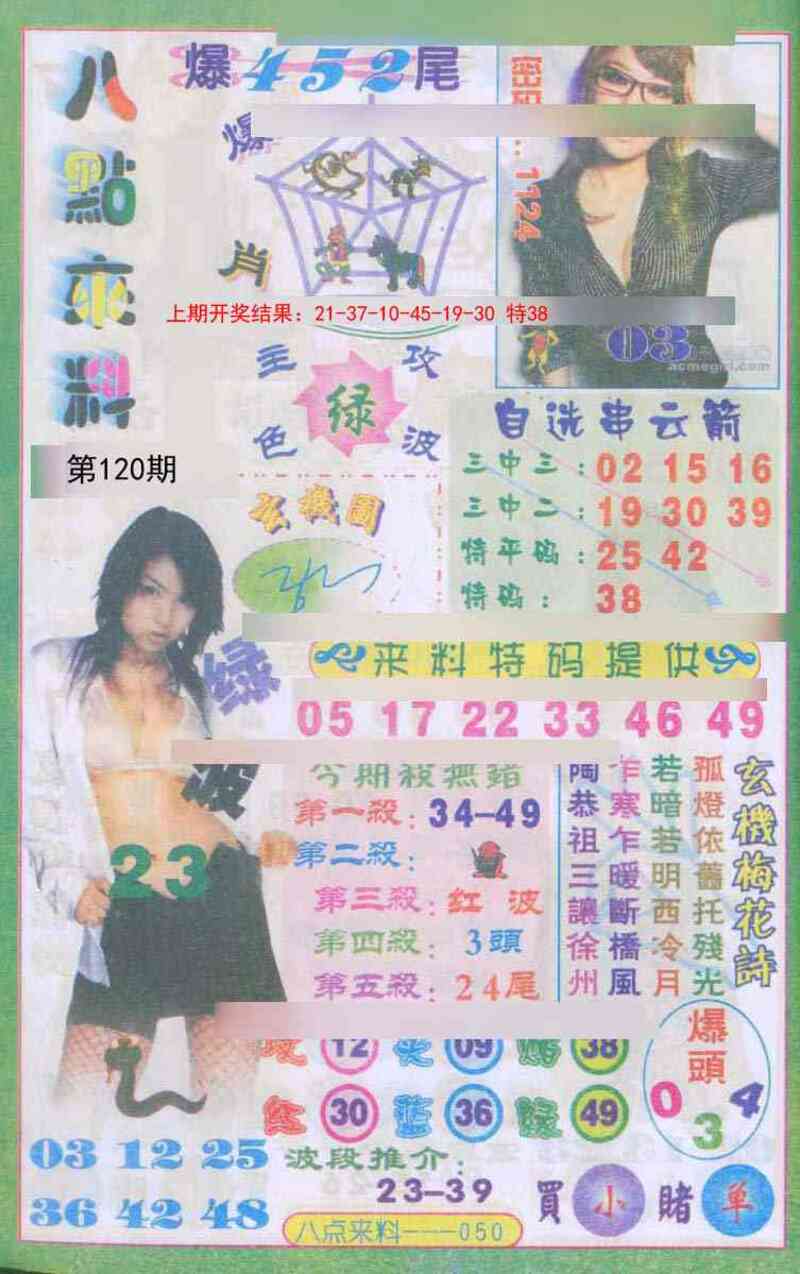 八點來料
爆452尾
爆
肖
1124
03
acmegirl.com
上期开奖结果：21-37-10-45-19-30 特38
主攻
绿
色波
第120期
玄機圖
自选串云箭
三中三：02 15 16
三中二：19 30 39
特平码：25 42
特码：38
来料特码提供
05 17 22 33 46 49
绿
波
23
今期殺無錯
第一殺：34-49
第二殺：
第三殺：红波
第四殺：3頭
第五殺：24尾
玄機梅花詩
孤燈依舊托殘光
若暗若明西冷月
乍寒乍暖斷橋風
陶恭祖三讓徐州
12 09 38
红 30 蓝 36 绿 49
爆頭
0 3 4
03 12 25
36 42 48
波段推介：
23-39
買小賭单
八点来料----050